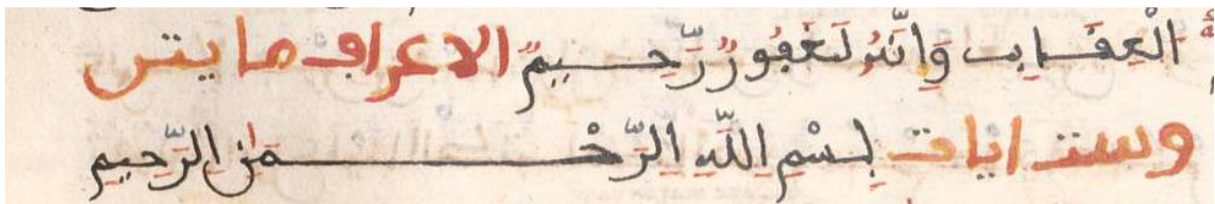 اَلْعِقَابِ وَإِنَّهُ لَغَفُورٌ رَّحِيمٌ الاعراف مايتين
وست ايات بِسْمِ اِللَّهِ اِلرَّحْمَٰنِ اِلرَّحِيمِ